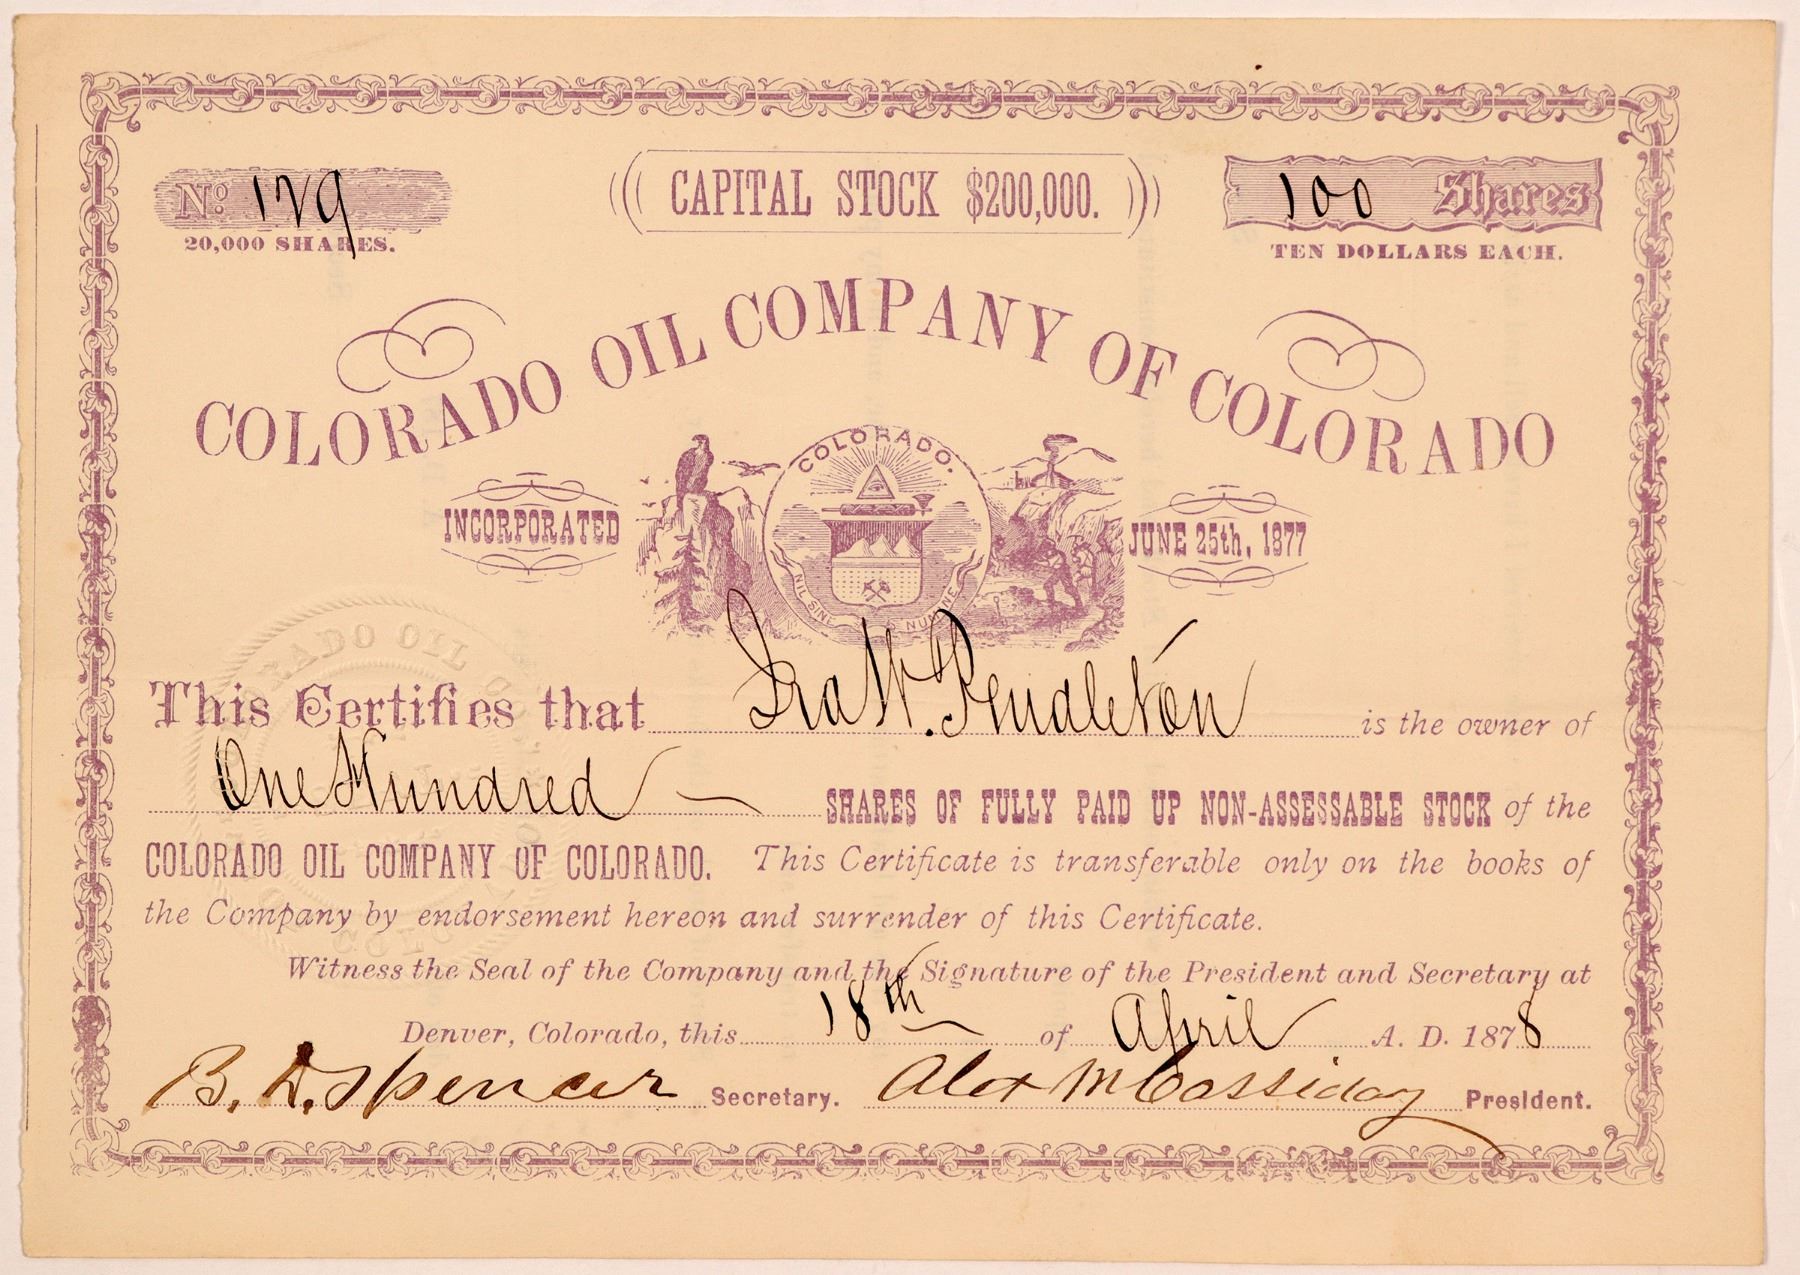 No. 129
20,000 SHARES.
CAPITAL STOCK $200,000.
100 Shares
TEN DOLLARS EACH.
COLORADO OIL COMPANY OF COLORADO
INCORPORATED
JUNE 25th, 1877
COLORADO.
NIL SINE NUMINE
This Certifies that Ira W. Pendleton is the owner of
One Hundred SHARES OF FULLY PAID UP NON-ASSESSABLE STOCK of the
COLORADO OIL COMPANY OF COLORADO. This Certificate is transferable only on the books of
the Company by endorsement hereon and surrender of this Certificate.
Witness the Seal of the Company and the Signature of the President and Secretary at
Denver, Colorado, this 18th of April A. D. 1878
B. D. Spencer Secretary. Alex McCassiday President.
COLORADO OIL